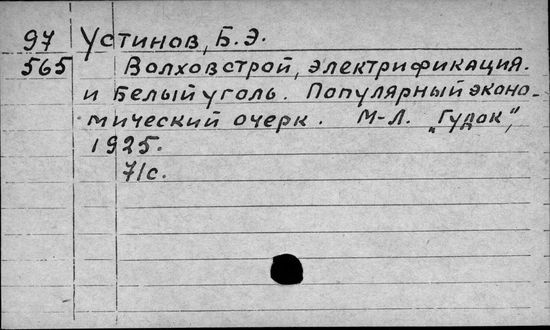 97 Устинов, Б. Э.
565 Волховстрой, электрификация.
и Белый уголь. Популярный эконо-
мический очерк. М-Л. „Гудок",
1925.
71с.